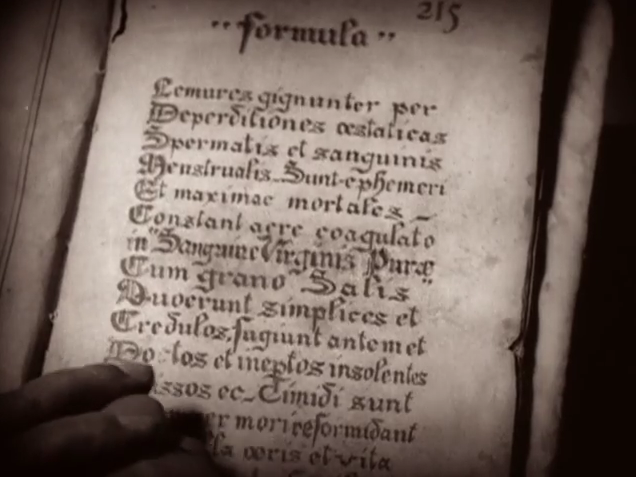 215
"formula"
Lemures gignunter per
Deperditiones œstaticas
Spermatis et sanguinis
Menstrualis. Sunt ephemeri
Et maximae mortales –
Constant aere coagulato
in "Sanguine Virginis Puræ
Cum grano Salis"
Quoerunt simplices et
Credulos, fugiunt antem et
et ineptos insolentes
ec_ Timidi sunt
mori reformidant
et vita